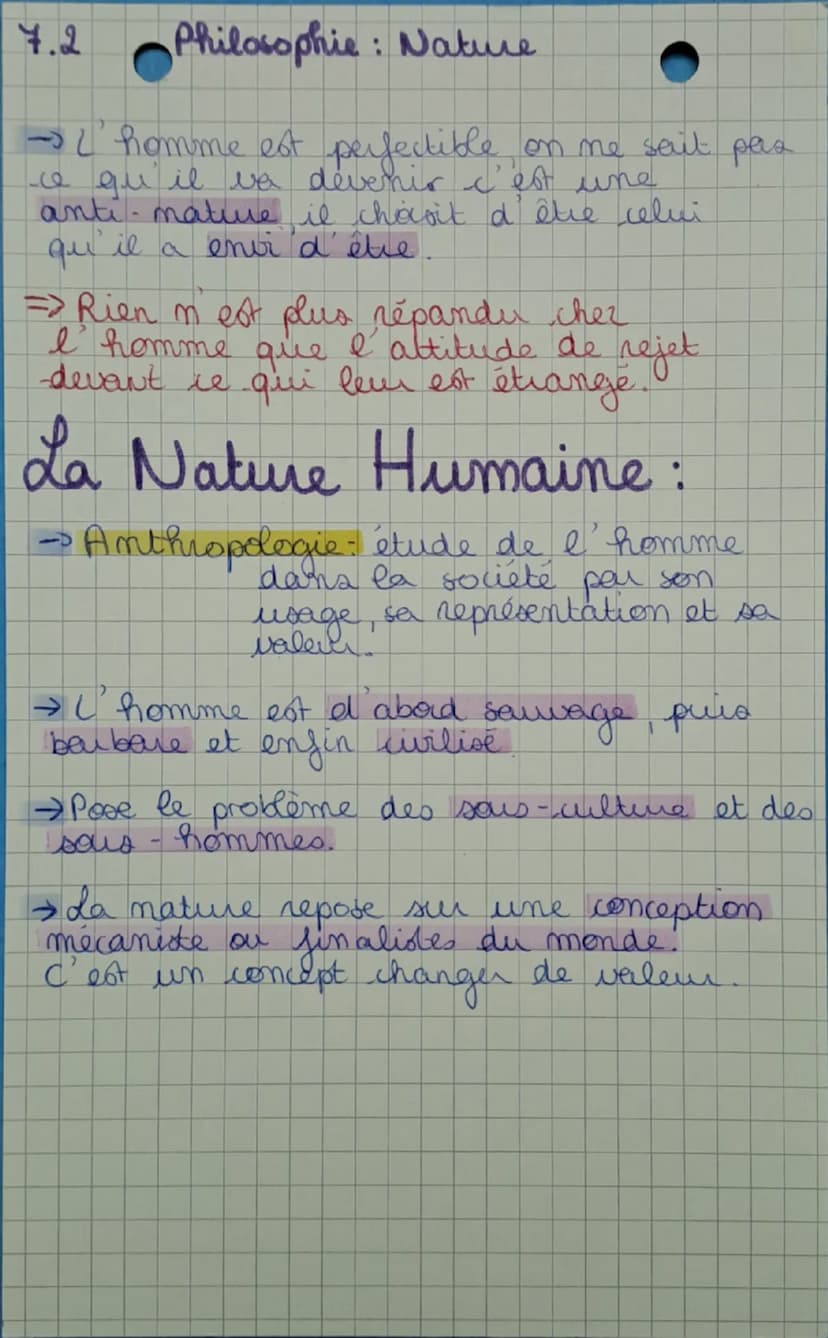 7.2 Philosophie : Nature
→ L'homme est perfectible, on ne sait pas
ce qu'il va devenir c'est une
anti-nature, il choisit d'être celui
qu'il a envi d'être.
=> Rien n'est plus répandu chez
l'homme que l'attitude de rejet
devant ce qui leur est étrangé.
La Nature Humaine :
→ Anthropologie : étude de l'homme
dans la société par son
usage, sa représentation et sa
valeur.
→ L'homme est d'abord sauvage, puis
barbare et enfin civilisé
→ Pose le problème des sous-culture et des
sous-hommes.
→ La nature repose sur une conception
mécaniste ou finalistes du monde.
C'est un concept changer de valeur.